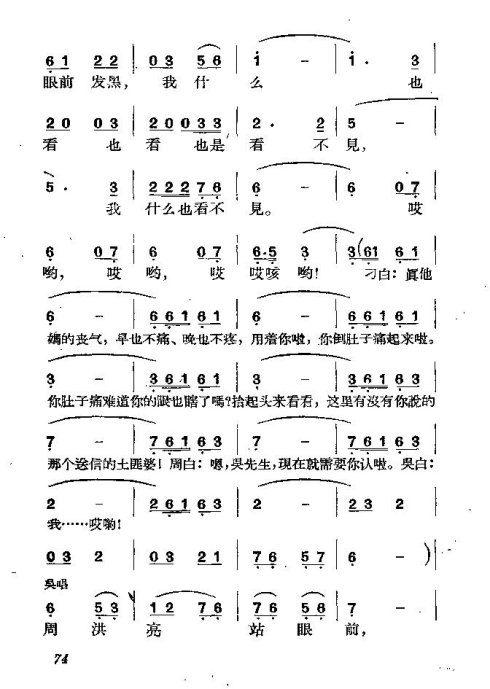 6 1 2 2 | 0 3 5 6 | 1 - | 1 · 3
眼前 发黑, 我 什 么 也
2 0 0 3 | 2 0 0 3 3 | 2 · 2 | 5 -
看 也 看 也是 看 不 見,
5 · 3 | 2 2 2 7 6 | 6 - | 6 0 7
我 什么也看不 見。 哎
6 0 7 | 6 0 7 | 6·5 3 | 3(61 61
哟, 哎 哟, 哎 哎咳 哟! 刁白:眞他
6 - | 6161 61 | 6 - | 6161 61
媽的丧气,早也不痛、晚也不疼,用着你啦,你倒肚子痛起来啦。
3 - | 3 6 1 6 1 | 3 - | 3 6 1 6 1
你肚子痛难道你的眼也瞎了嗎?抬起头来看看,这里有沒有你說的
7 - | 7 6 1 6 3 | 7 - | 7 6 1 6 3
那个送信的土匪婆!周白:嗯,吳先生,现在就需要你认啦。吳白:
2 - | 2 6 1 6 3 | 2 - | 3 2
我……哎喲!
0 3 2 | 0 3 2 1 | 7 6 5 7 | 6 -)
吳唱
6 5 3 | 1 2 7 6 | 7 6 5 6 | 7 -
周 洪 亮 站 眼 前,
74